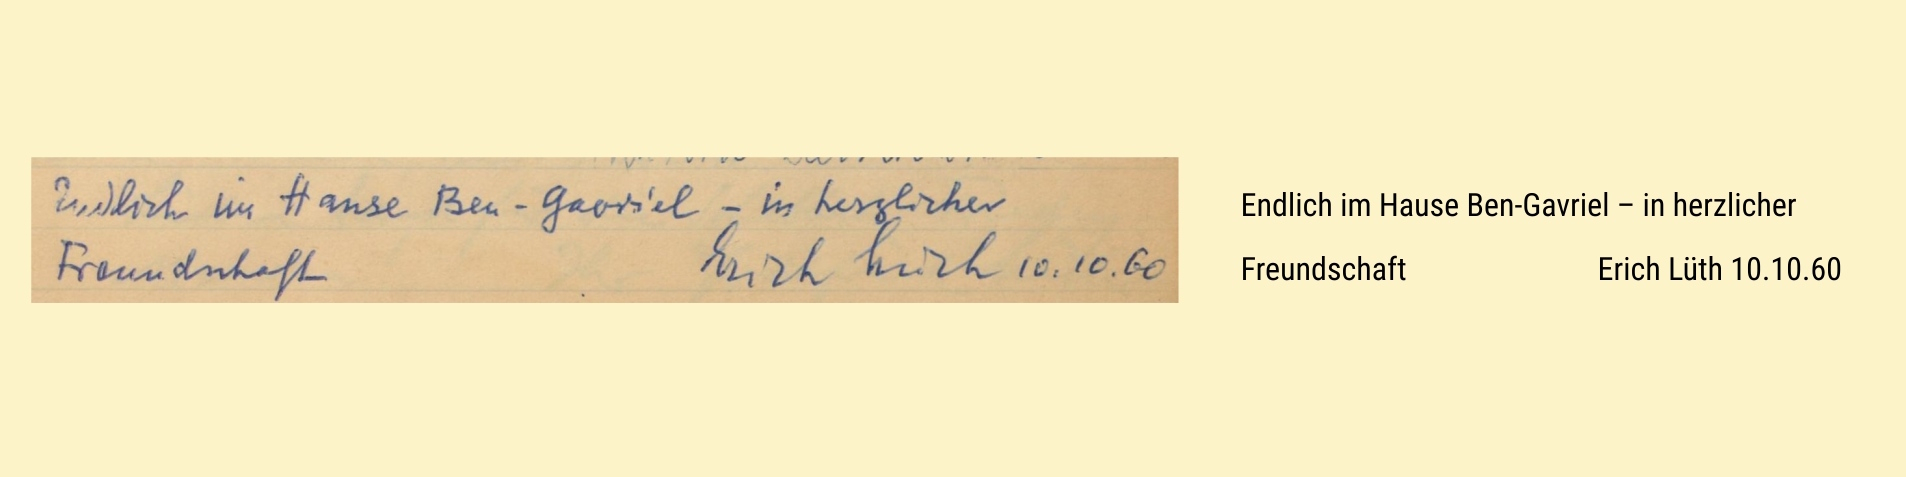 Endlich im Hause Ben-Gavriel – in herzlicher
Freundschaft Erich Lüth 10.10.60
Endlich im Hause Ben-Gavriel – in herzlicher
Freundschaft Erich Lüth 10.10.60